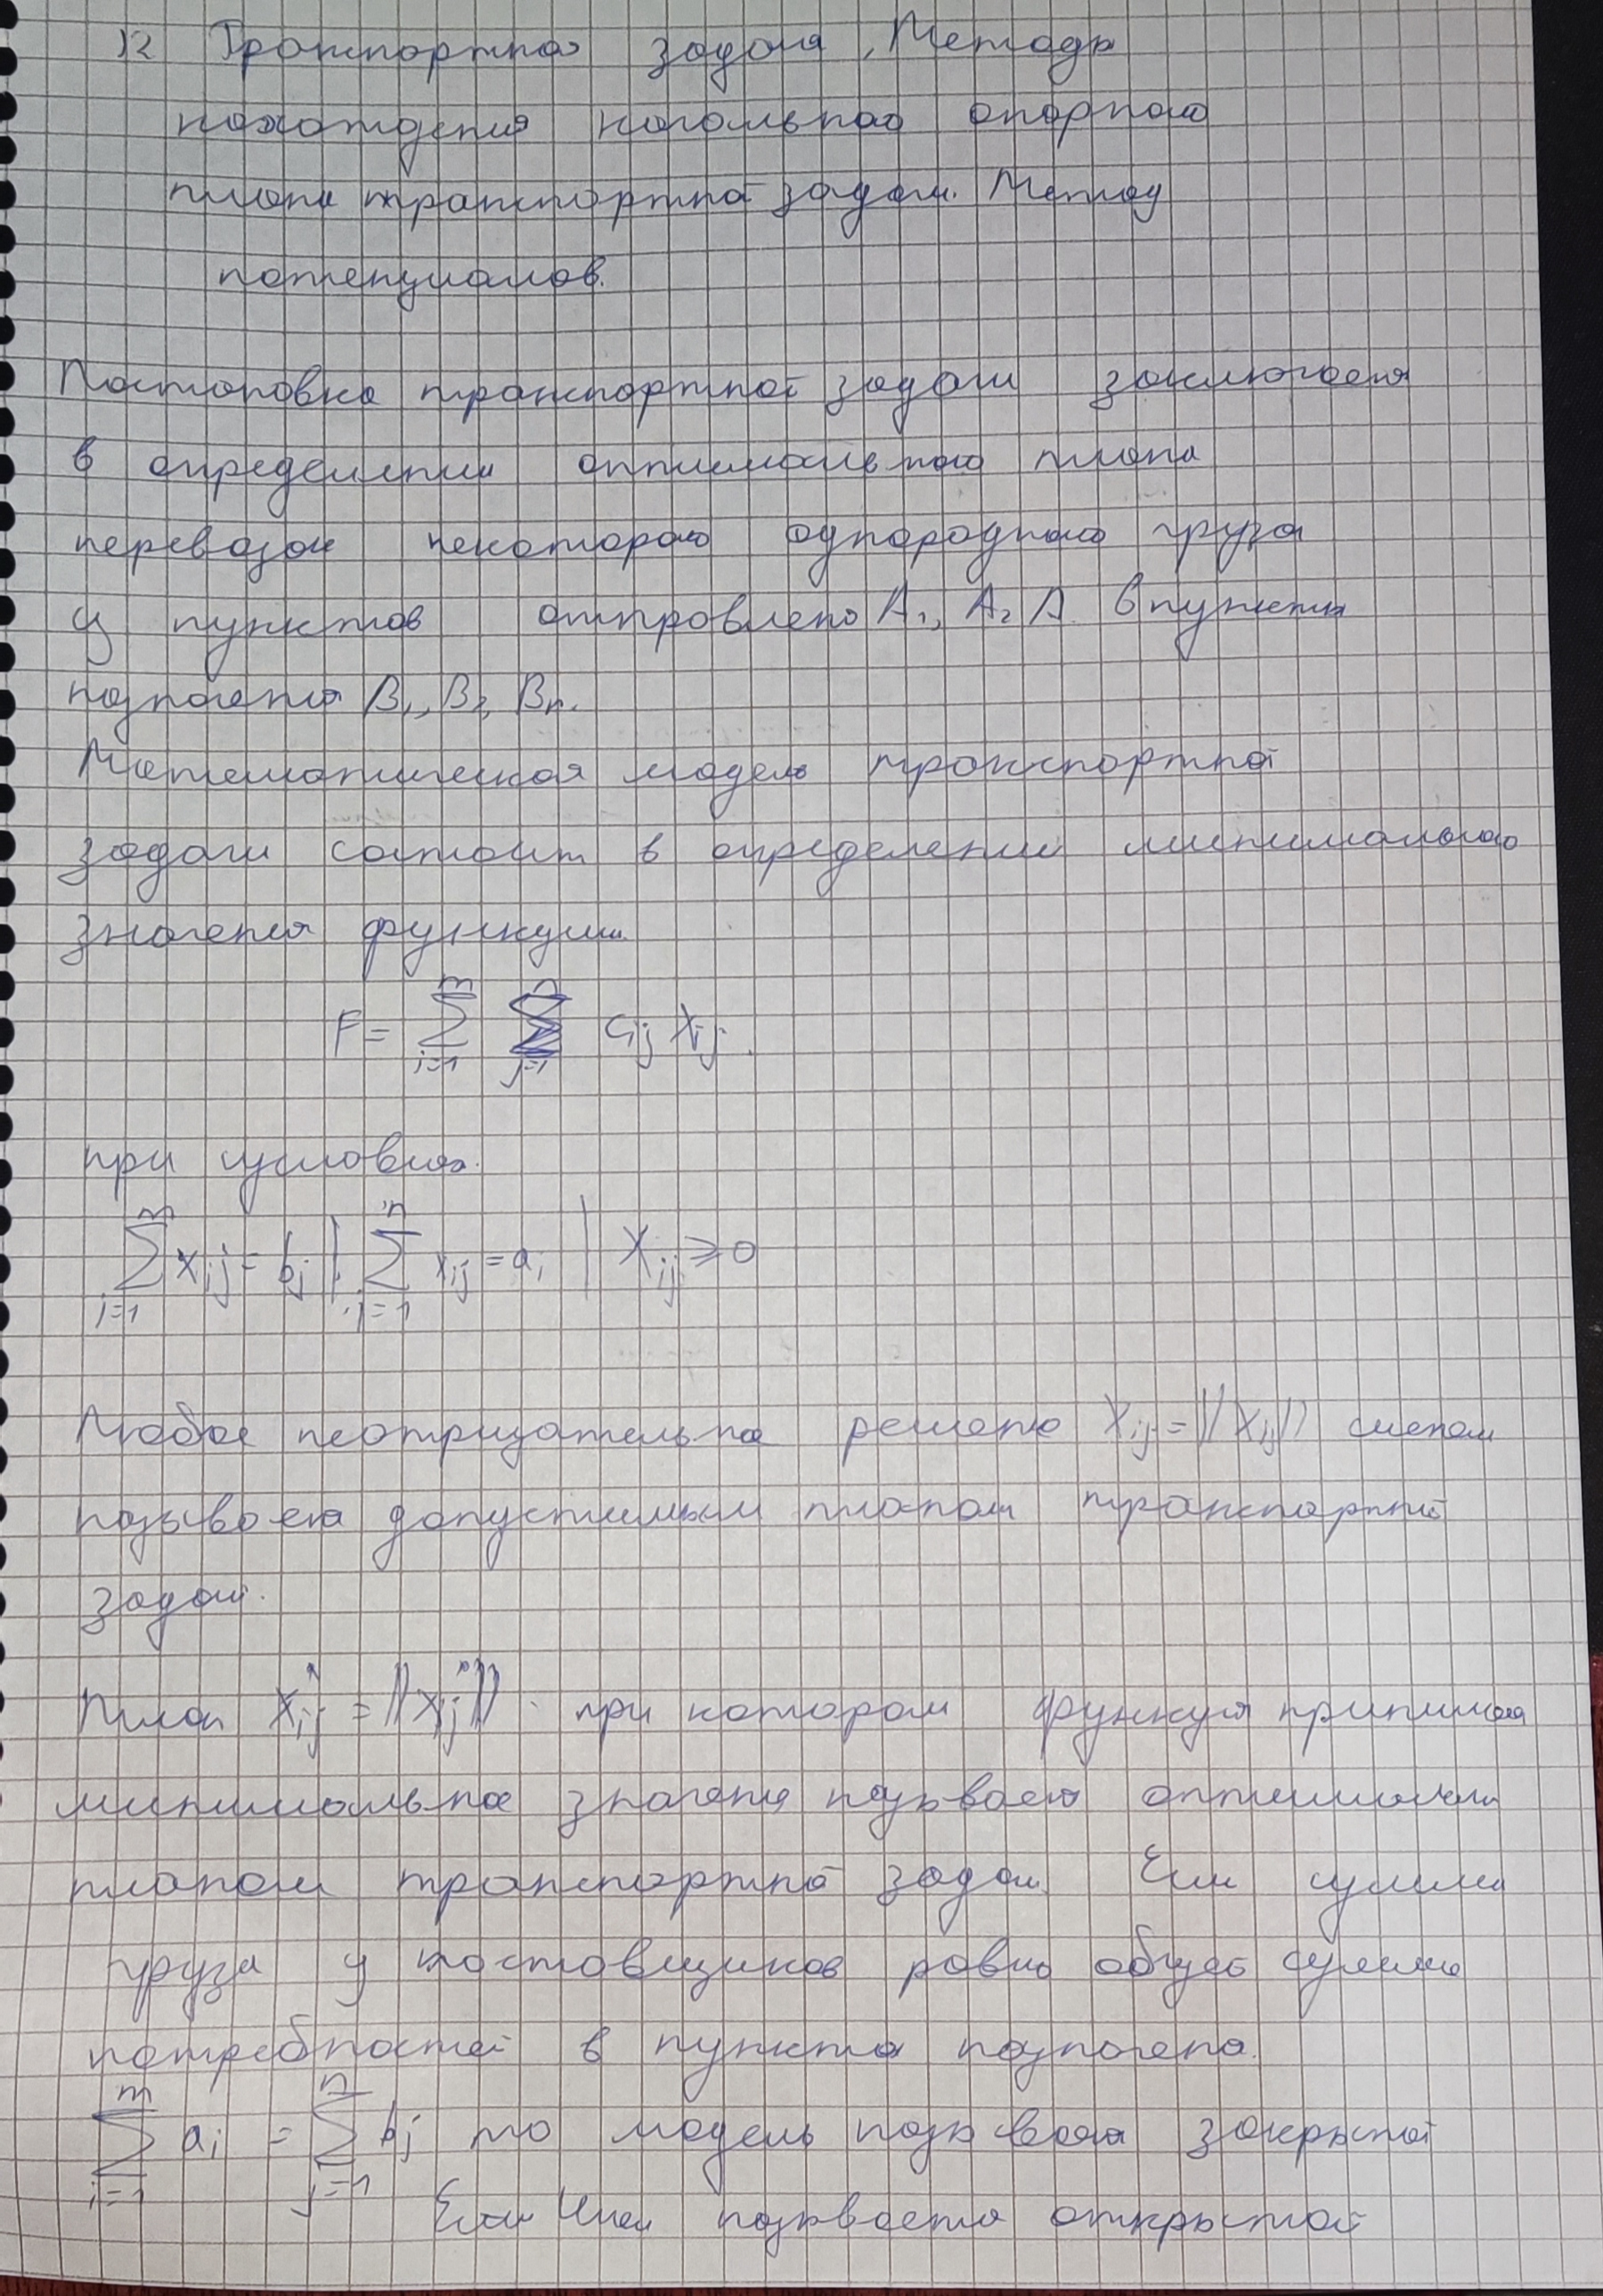 12 Транспортная задача, Методы
нахождения начального опорного
плана транспортной задачи. Метод
потенциалов.
Постановка транспортной задачи заключается
в определении оптимального плана
перевозок некоторого однородного груза
из пунктов отправлено A₁, A₂ A в пункты
назначения B₁, B₂, Bₙ.
Математическая модель транспортной
задачи состоит в определении минимального
значения функции.
F = ∑_{i=1}^{m} ∑_{j=1}^{n} cᵢⱼ xᵢⱼ.
при условиях.
∑_{i=1}^{m} xᵢⱼ = bⱼ | ∑_{j=1}^{n} xᵢⱼ = aᵢ | Xᵢⱼ ≥ 0
Любое неотрицательное решение Xᵢⱼ = ||Xᵢⱼ|| систем
называется допустимым планом транспортной
задачи.
План при котором функция принимает
минимальное значение называется оптимальным
планом транспортной задачи. Если сумма
груза у поставщиков равно общей сумме
потребностей в пунктах назначено.
∑_{i=1}^{m} aᵢ = ∑_{j=1}^{n} bⱼ то модель называется закрытой
Если называется открытой